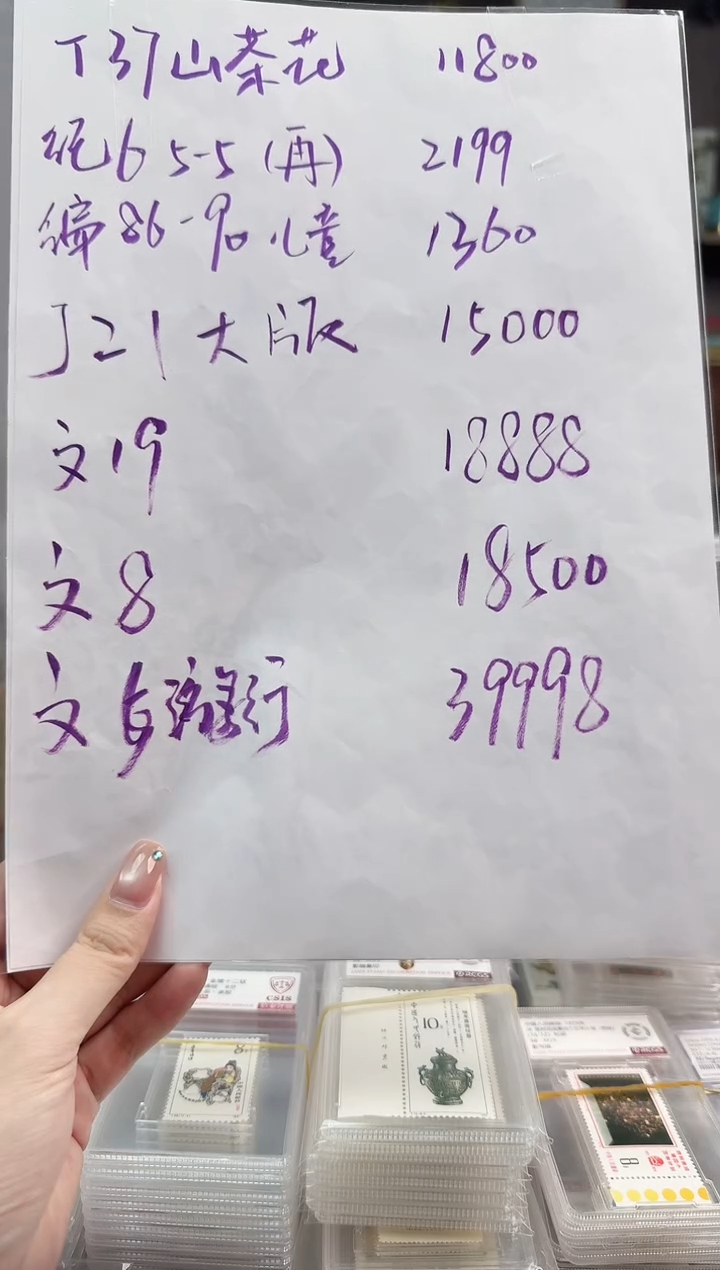 T37山茶花 11800
纪6 5-5(再) 2199
编86-90儿童 1360
J21大版 15000
文19 18888
文8 18500
文 39998
CSIS
10分
8分